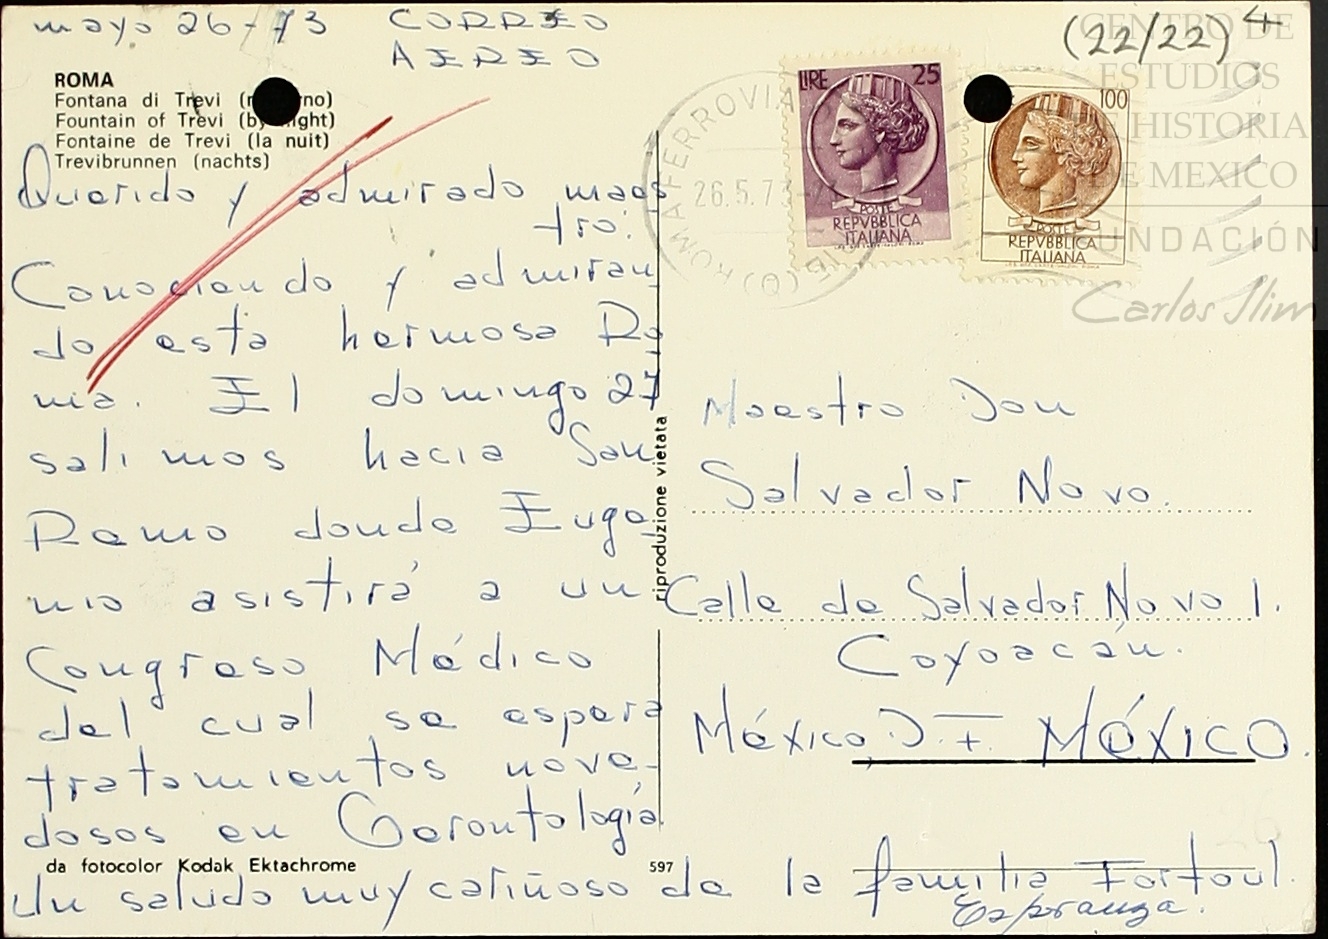 mayo 26-73 CORREO
AEREO
(22/22) 4
ROMA
Fontana di Trevi (notturno)
Fountain of Trevi (by night)
Fontaine de Trevi (la nuit)
Trevibrunnen (nachts)
Querido y admirado maes
tro:
Conociendo y admiran
do esta hermosa Ro
ma. El domingo 27
salimos hacia San
Remo donde Euge
nio asistirá a un
Congreso Médico
del cual se espera
tratamientos nove-
dosos en Gerontología
Un saludo muy cariñoso de la familia Fortoul.
Esperanza.
da fotocolor Kodak Ektachrome
597
riproduzione vietata
ROMA FERROVIA
26.5.73
LIRE 25
POSTE
REPVBBLICA
ITALIANA
100
POSTE
REPVBBLICA
ITALIANA
Maestro Don
Salvador Novo.
Calle de Salvador Novo 1.
Coyoacán.
México, D.F. MÉXICO.
CENTRO DE
ESTUDIOS
DE HISTORIA
DE MEXICO
FUNDACIÓN
Carlos Slim